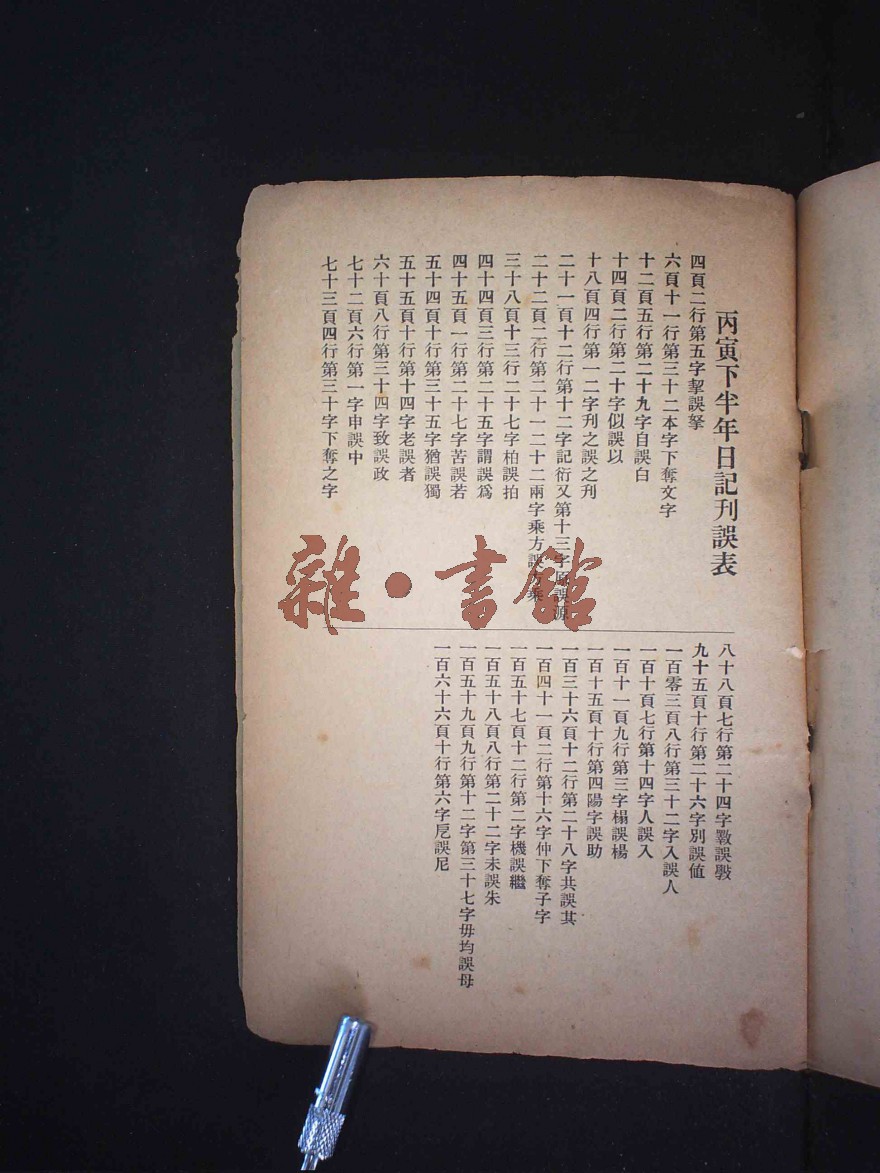 丙寅下半年日記刋誤表
四頁二行第五字挈誤拏
六頁十一行第三十二本字下奪文字
十二頁五行第二十九字自誤白
十四頁二行第二十字似誤以
十八頁四行第一二字刋之誤之刋
二十一頁十二行第十二字記衍又第十三字原誤源
二十二頁二行第二十一二十二兩字乘方誤方乘
三十八頁十三行二十七字柏誤拍
四十四頁三行第二十五字謂誤爲
四十五頁一行第二十七字苦誤若
五十四頁十行第三十五字猶誤獨
五十五頁十行第十四字老誤者
六十頁八行第三十四字致誤政
七十二頁六行第一字申誤中
七十三頁四行第三十字下奪之字
八十八頁七行第二十四字斅誤
九十五頁十行第二十六字別誤値
一百零三頁八行第三十二字入誤人
一百十頁七行第十四字人誤入
一百十一頁九行第三字榻誤楊
一百十五頁十行第四陽字誤助
一百三十六頁十二行第二十八字共誤其
一百四十一頁二行第十六字仲下奪子字
一百五十七頁十二行第二字機誤繼
一百五十八頁八行第二十二字未誤朱
一百五十九頁九行第十二字第三十七字毋均誤母
一百六十六頁十行第六字卮誤尼
雜·書館